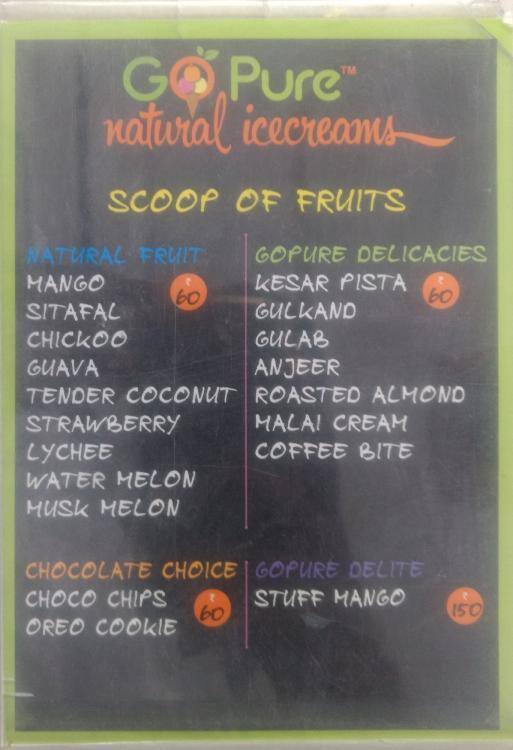 GO Pure™
natural icecreams
SCOOP OF FRUITS
NATURAL FRUIT
₹
60
MANGO
SITAFAL
CHICKOO
GUAVA
TENDER COCONUT
STRAWBERRY
LYCHEE
WATER MELON
MUSK MELON
GOPURE DELICACIES
₹
60
KESAR PISTA
GULKAND
GULAB
ANJEER
ROASTED ALMOND
MALAI CREAM
COFFEE BITE
CHOCOLATE CHOICE
CHOCO CHIPS
₹
60
OREO COOKIE
GOPURE DELITE
STUFF MANGO
₹
150